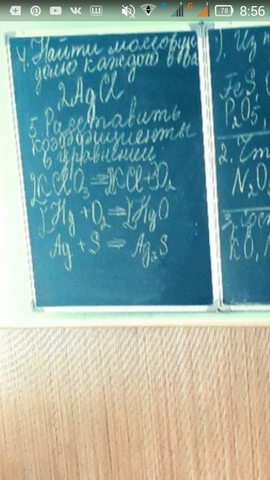 78 8:56
4. Найти массовую
долю каждого в-ва
2AgCl
5. Расставить
коэффициенты
в уравнении
KClO₃ = KCl+O₂
Hg + O₂ ⇒ HgO
Ag + S ⇒ Ag₂S
1. Из
FeS
P₂O₅,
2.
N₂O
3.